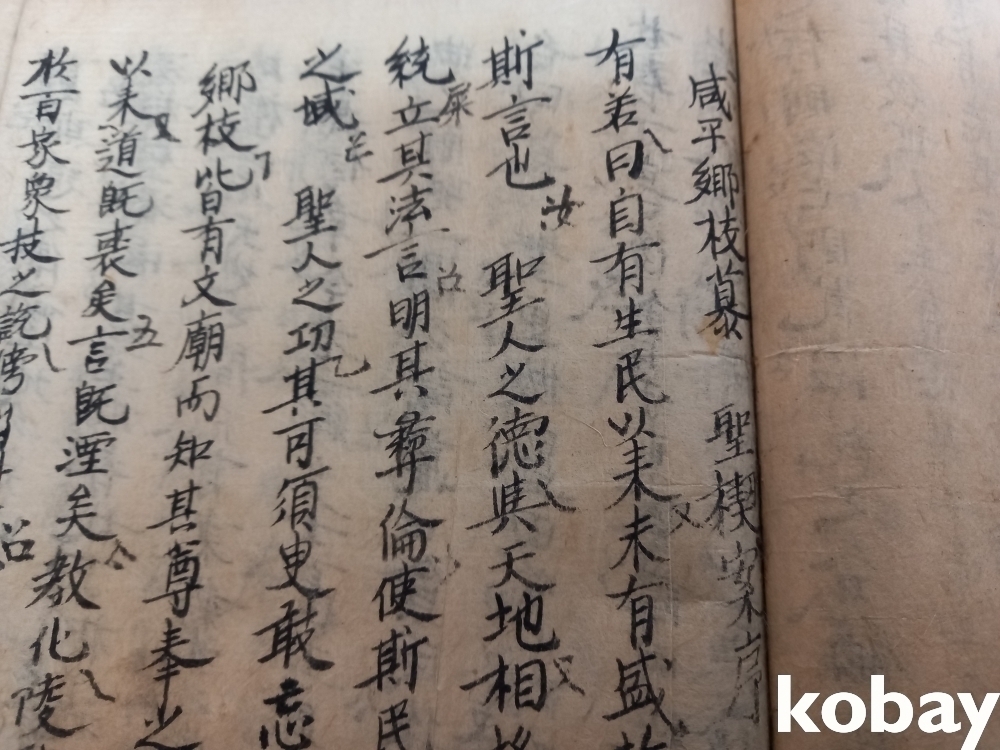 咸平鄉校慕 聖稧案序
有若曰自有生民以来未有盛於
斯言也 聖人之德與天地相
統立其法言明其彝倫使斯民
之域 聖人之功其可須臾敢忘
鄉校皆有文廟而知其尊奉之
以来道既衰矣言既湮矣教化陵
於百家衆技之說
kobay